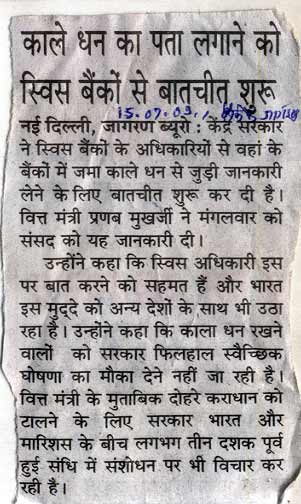 काले धन का पता लगाने को
स्विस बैंकों से बातचीत शुरू
15.07.09
नई दिल्ली, जागरण ब्यूरो : केंद्र सरकार
ने स्विस बैंकों के अधिकारियों से वहां के
बैंकों में जमा काले धन से जुड़ी जानकारी
लेने के लिए बातचीत शुरू कर दी है।
वित्त मंत्री प्रणब मुखर्जी ने मंगलवार को
संसद को यह जानकारी दी।
उन्होंने कहा कि स्विस अधिकारी इस
पर बात करने को सहमत हैं और भारत
इस मुद्दे को अन्य देशों के साथ भी उठा
रहा है। उन्होंने कहा कि काला धन रखने
वालों को सरकार फिलहाल स्वैच्छिक
घोषणा का मौका देने नहीं जा रही है।
वित्त मंत्री के मुताबिक दोहरे कराधान को
टालने के लिए सरकार भारत और
मारिशस के बीच लगभग तीन दशक पूर्व
हुई संधि में संशोधन पर भी विचार कर
रही है।